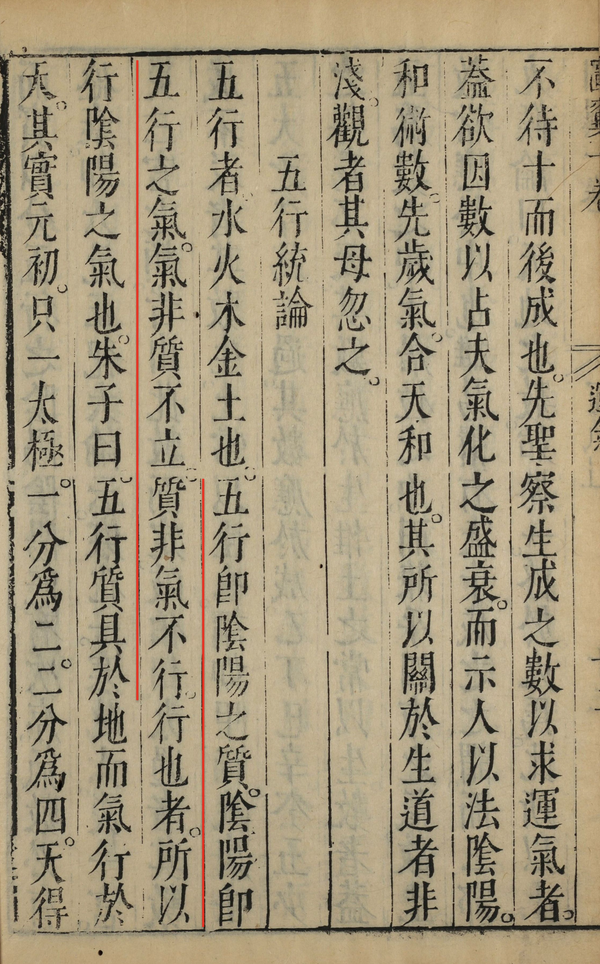 不待十而後成也。先聖察生成之數以求運氣者。
蓋欲因數以占夫氣化之盛衰。而示人以法陰陽。
和術數。先歲氣。合天和也。其所以關於生道者非
淺。觀者其毋忽之。
五行統論
五行者。水火木金土也。五行卽陰陽之質。陰陽卽
五行之氣。氣非質不立。質非氣不行。行也者。所以
行陰陽之氣也。朱子曰。五行質具於地而氣行於
天。其實元初。只一太極。一分爲二。二分爲四。天得